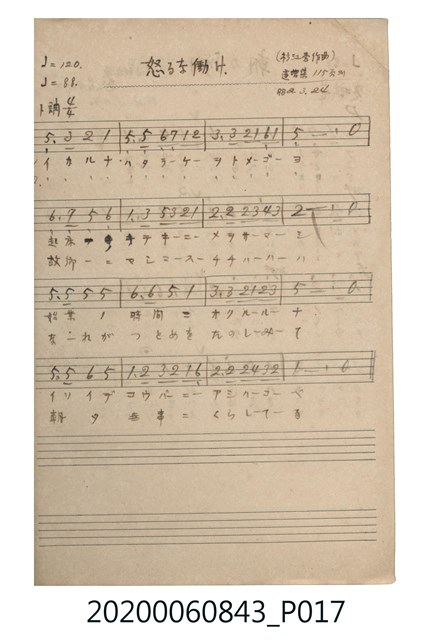 ♩=120.
怒るな働け.
♩=88.
ト調 4/4
5. 3 2 1 | 5. 5 6 7 1 2 | 3. 3 2 1 6 1 | 5 — . 0
イ カ ル ナ・ハ タ ラ ー ケ ー ヲ ト メ ー ゴ ー ヨ
6. 7 5 6 | 1. 3 5 3 2 1 | 2. 2 2 3 4 3 | 2 — . 0
テ キ ー ニ ー メ ヲ サ ー マ ー シ
故 郷 ー ニ マ シ マ ー ス ー チ チ ハ ー ハ ー ハ
5. 5 5 5 | 6. 6 5 1 | 3. 3 2 1 2 3 | 5 — . 0
始 業 ノ 時 間 ニ オ ク ル ー ル ー ナ
な こ れ が つ と め を た の し ー み ー て
5. 5 6 5 | 1. 2 3 2 1 6 | 2. 2 2 4 3 2 | 1 — . 0
イ ソ イ デ コ ウ バ ー ニ ー ア ミ カ ー ゴ ー ベ
朝 夕 無 事 ニ く ら し ー て ー る
20200060843_P017